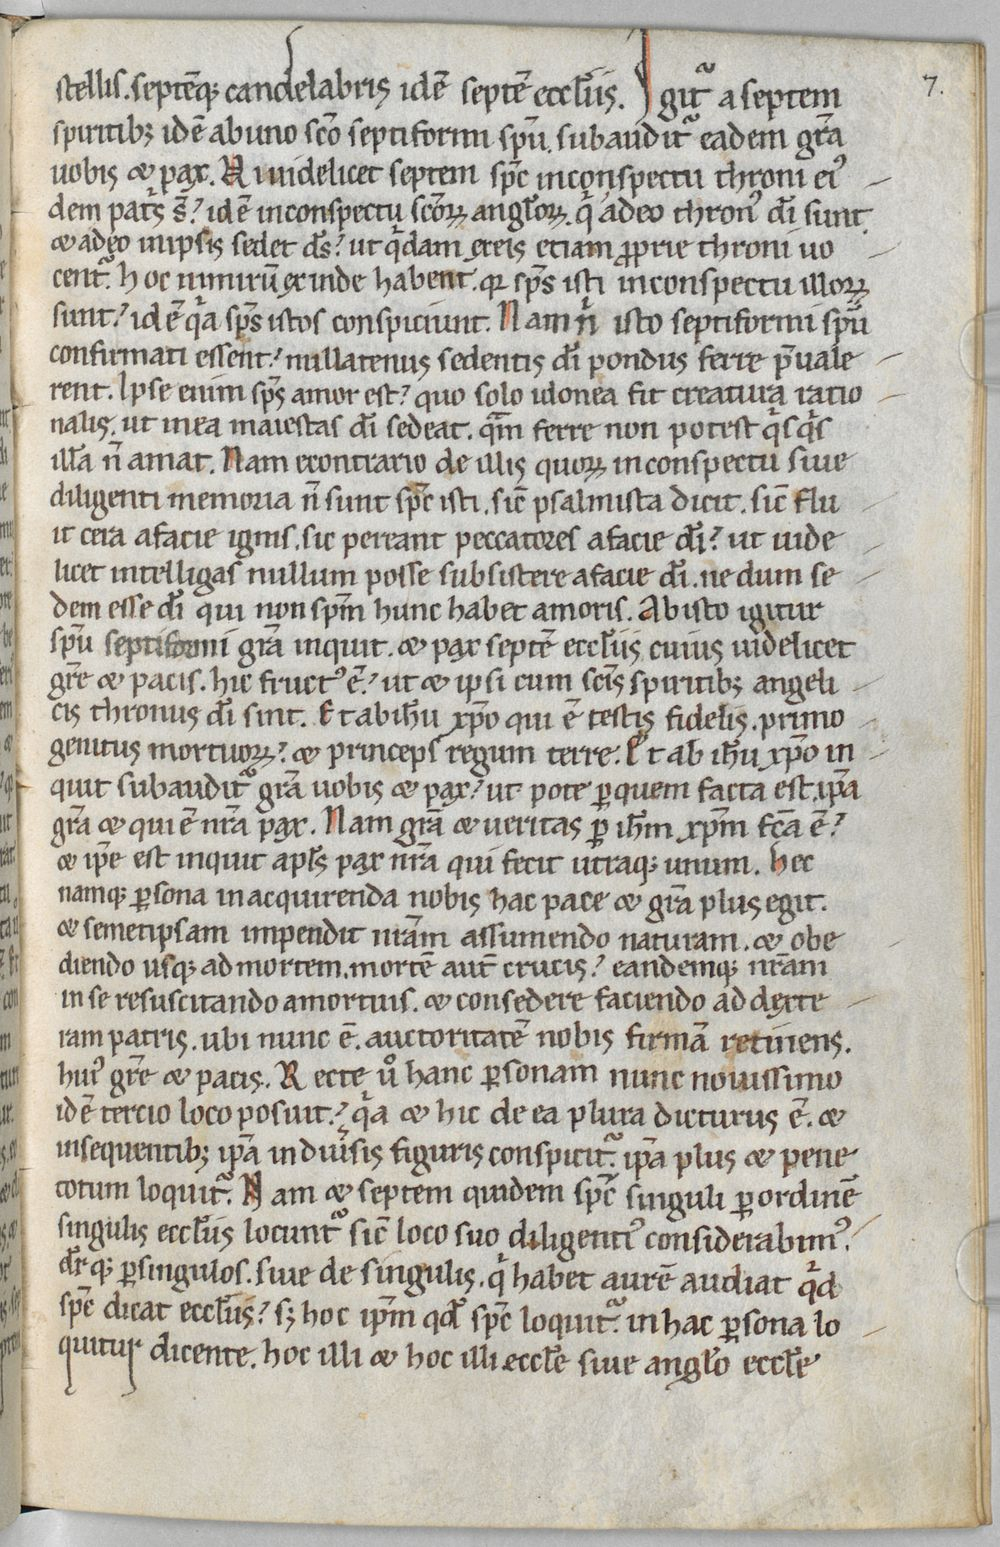 7.
stellis. septēq; candelabris idē septē eccłiis. Igit᷒ a septem
spiritib; idē ab uno scō septiformi spū. subaudit᷒ eadem gr̄a
uobis & pax. Qui uidelicet septem spc̄ in conspectu throni ei᷒
dem patr̄s s̄? idē in conspectu scōꝝ angłoꝝ. q̇ adeo thron᷒ dī sunt
& adeo in ipsis sedet ds̄? ut q̇dam ex eis etiam ꝓprie throni uo
cent᷒. hoc nimirū exinde habent. qꝛ sps̄ isti in conspectu illoꝝ
sunt? idē q̇a sps̄ istos conspiciunt. Nam n̄ isto septiformi spū
confirmati essent? nullatenus sedentis dī pondus ferre p̄uale
rent. Ipse enim sps̄ amor est? quo solo idonea fit creatura ratio
nalis. ut in ea maiestas dī sedeat. qm̄ ferre non potest q̇sq̇s
illā n̄ amat. Nam econtrario de illis quoꝝ in conspectu siue
diligenti memoria n̄ sunt spc̄ isti. sic̄ psalmista dicit. sic̄ flu
it cera a facie ignis. sic pereant peccatores a facie dī? ut uide
licet intelligas nullum posse subsistere a facie dī. ne dum se
dem esse dī qui non spm̄ hunc habet amoris. Ab isto igitur
spū septiformi gr̄a inquit. & pax septē eccłiis cuius uidelicet
gr̄e & pacis. hic fruct᷒ ē? ut & ipsi cum scīs spiritib; angeli
cis thronus dī sint. Et ab ih̄u xp̄o qui ē testis fidelis. primo
genitus mortuoꝝ? & princeps regum terre. Et ab ih̄u xp̄o in
quit subaudit᷒ gr̄a uobis & pax? ut pote ꝑ quem facta est. ip̄a
gr̄a & qui ē nr̄a pax. Nam gr̄a & ueritas ꝑ ih̄m xp̄m fc̄a ē?
& ip̄e est inquit apłs pax nr̄a qui fecit utraq; unum. Hec
namq; ꝑsona in acquirenda nobis hac pace & gr̄a plus egit.
& semetipsam impendit nr̄am assumendo naturam. & obe
diendo usq; ad mortem. mortē aut̄ crucis? eandemq; nr̄am
in se resuscitando a mortuis. & consedere faciendo ad dexte
ram patris. ubi nunc ē. auctoritatē nobis firmā retinens.
hui᷒ gr̄e & pacis. Recte ů hanc ꝑsonam nunc nouissimo
idē tercio loco posuit? q̇a & hic de ea plura dicturus ē. &
in sequentib; ip̄a in diuīsis figuris conspicit᷒. ip̄a plus & pene
totum loquit᷒. Nam & septem quidem spc̄ singuli ꝑ ordinē
singulis eccłiis locunt᷒ sic̄ loco suo diligenti᷒ considerabim᷒.
dr̄ q; ꝑ singulos. siue de singulis. q̇ habet aurē audiat q̇d
spc̄ dicat eccłiis? s; hoc ip̄m qd̄ spc̄ loquit᷒. in hac ꝑsona lo
quitur dicente. hoc illi & hoc illi eccłe siue angło eccłe